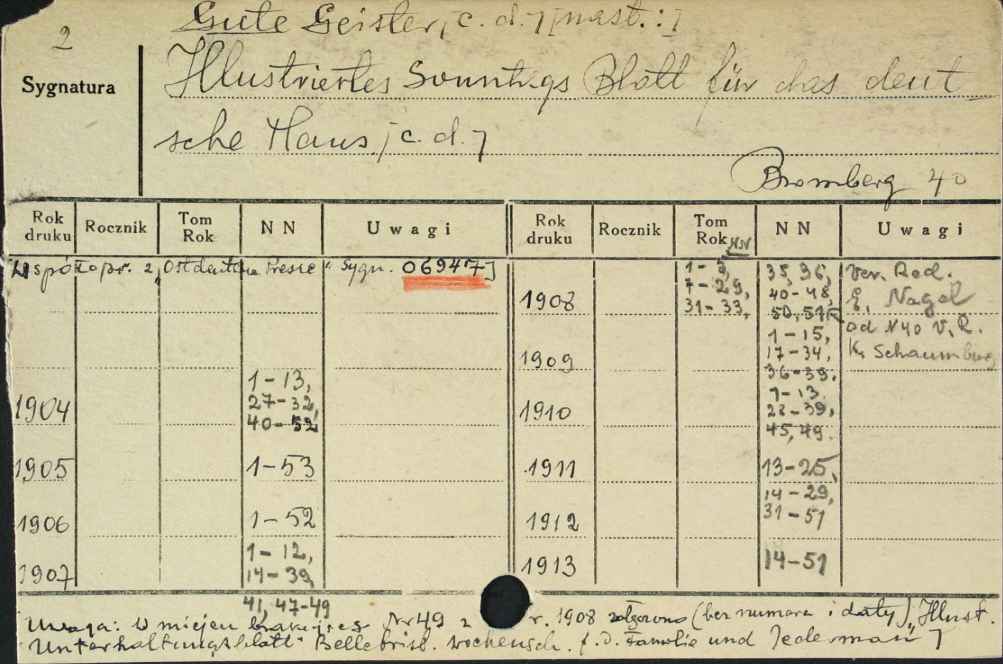 2
Gute Geister, [c. d.] [nast.:]
Sygnatura
Illustriertes Sonntags Blatt für das deut
sche Haus, [c. d.]
Bromberg 40
Rok druku Rocznik Tom Rok NN Uwagi Rok druku Rocznik Tom Rok NN NN Uwagi
Współopr. z „Ostdeutsche Presse" Sygn. 06947]
1904 1-13, 27-32, 40-52
1905 1-53
1906 1-52
1907 1-12, 14-39, 41, 47-49
1908 1-3, 7-29, 31-33, 35, 36, 40-48, 50, 51 Ver. Red. E. Nagel
1909 1-15, 17-34, 36-39. od N 40 V. R. K. Schaumburg
1910 1-13. 22-39, 45, 49.
1911 13-25,
1912 14-29, 31-51
1913 14-51
Uwaga: W miejscu brakującego Nr 49 z r. 1908 (bez numeru i daty) „Illust.
Unterhaltungsblatt" Belletrist. Wochensch. f. d. Familie und Jedermann]